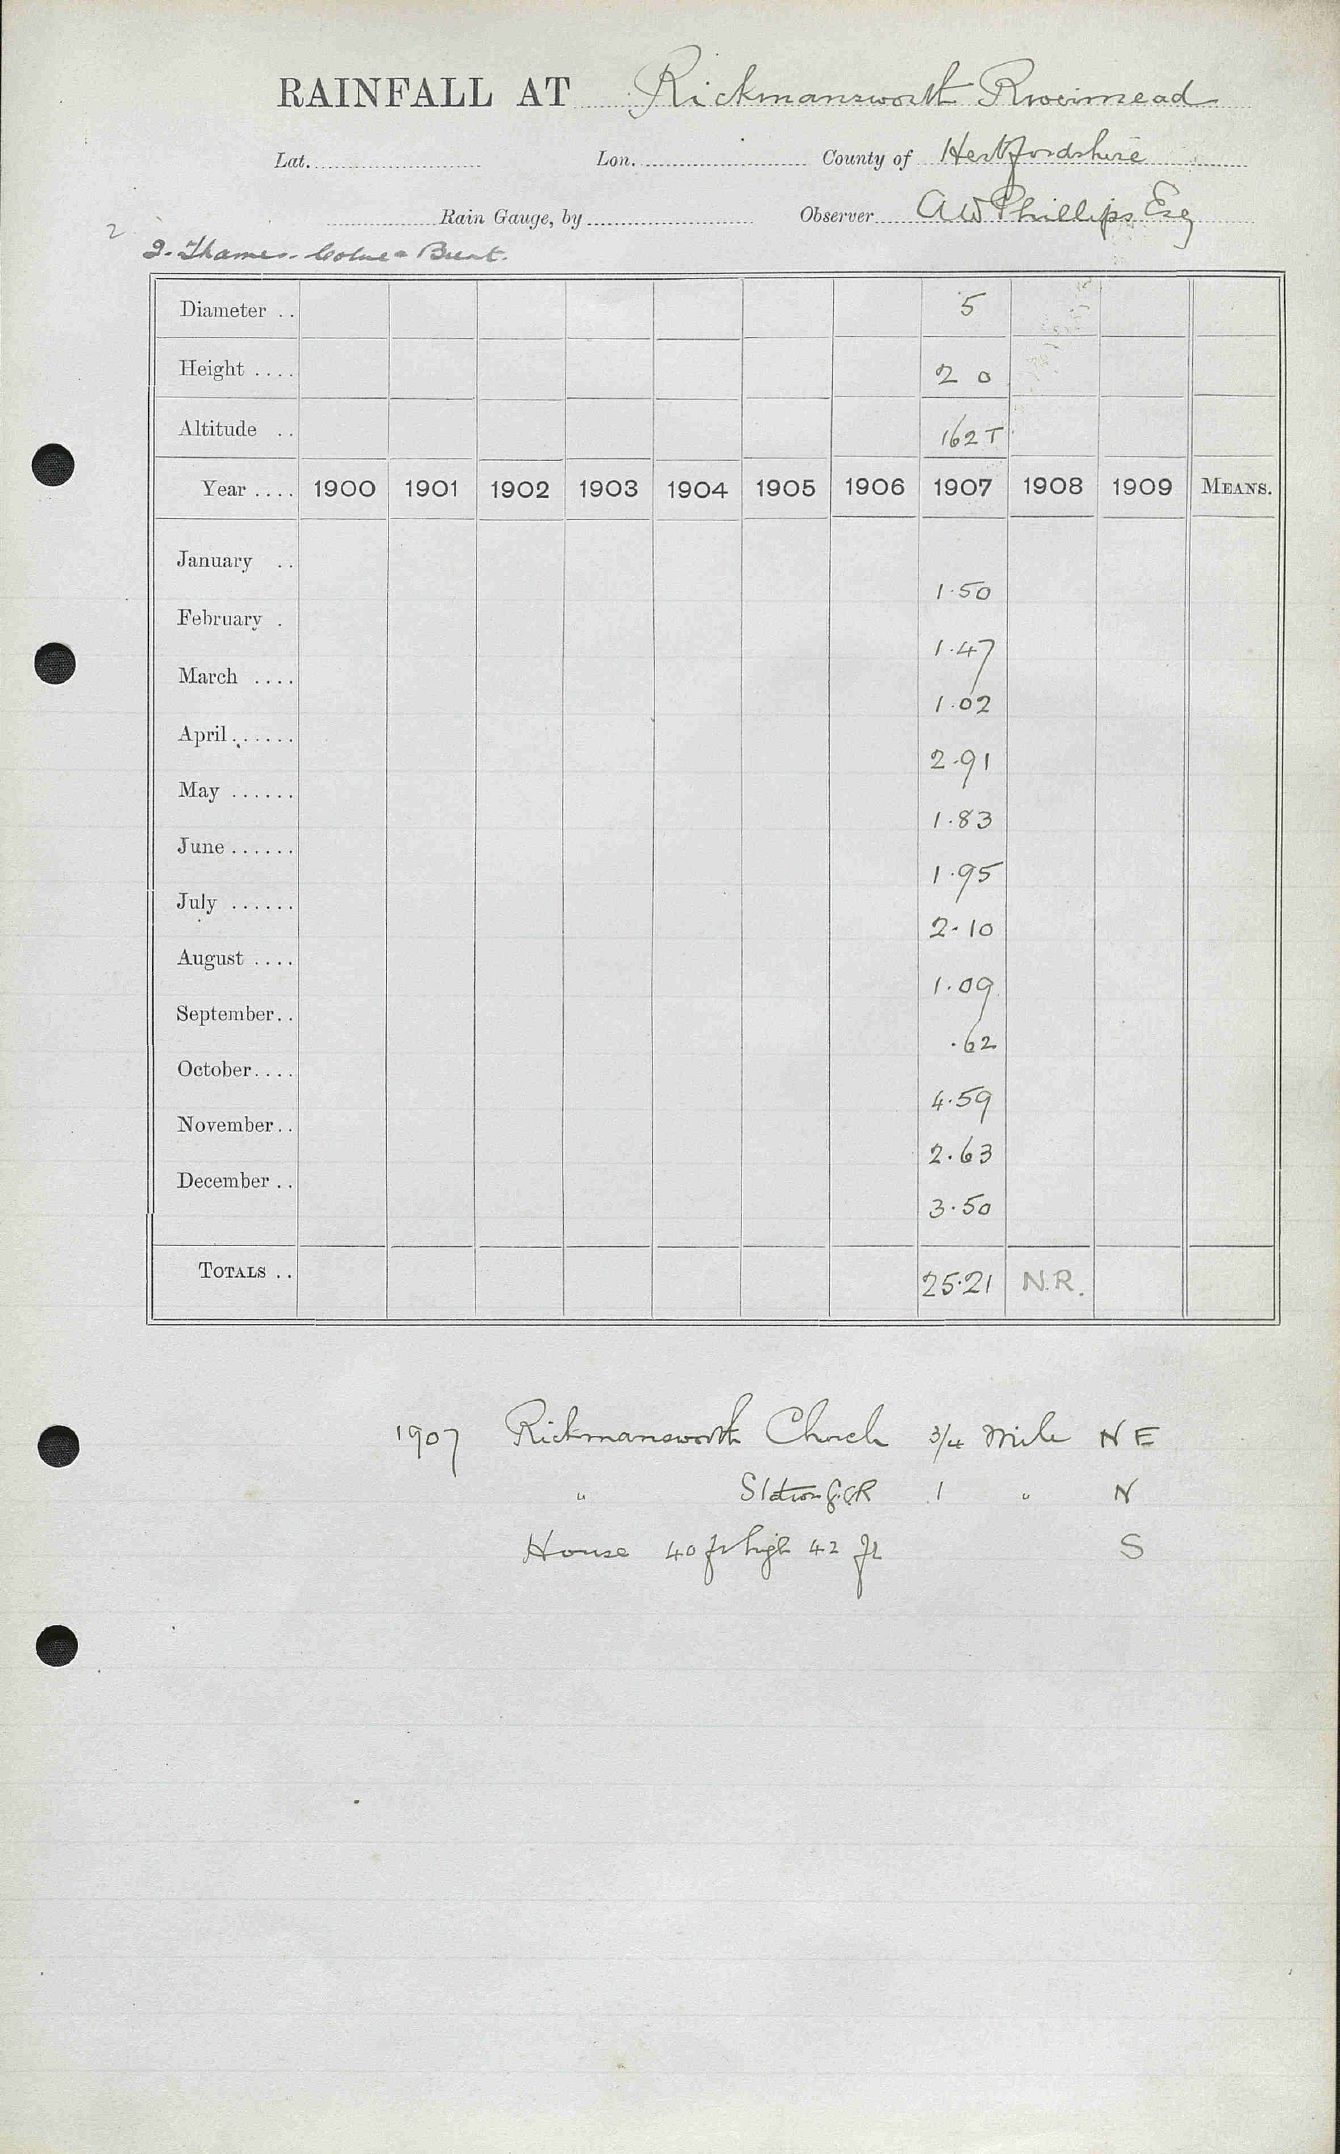 RAINFALL AT Rickmansworth Rivermead
Lat. Lon. County of Hertfordshire
Rain Gauge, by Observer A W Phillips Esq
2
2. Thames. Colne & Brent.
Diameter .. 5
Height .... 2 0
Altitude .. 162 T
Year .... 1900 1901 1902 1903 1904 1905 1906 1907 1908 1909 MEANS.
January .. 1.50
February . 1.47
March .... 1.02
April ...... 2.91
May ...... 1.83
June ...... 1.95
July ...... 2.10
August .... 1.09
September.. .62
October.... 4.59
November.. 2.63
December .. 3.50
TOTALS .. 25.21 N.R.
1907 Rickmansworth Church 3/4 Mile N E
" Station 1 " N
House 40 ft high 42 ft S